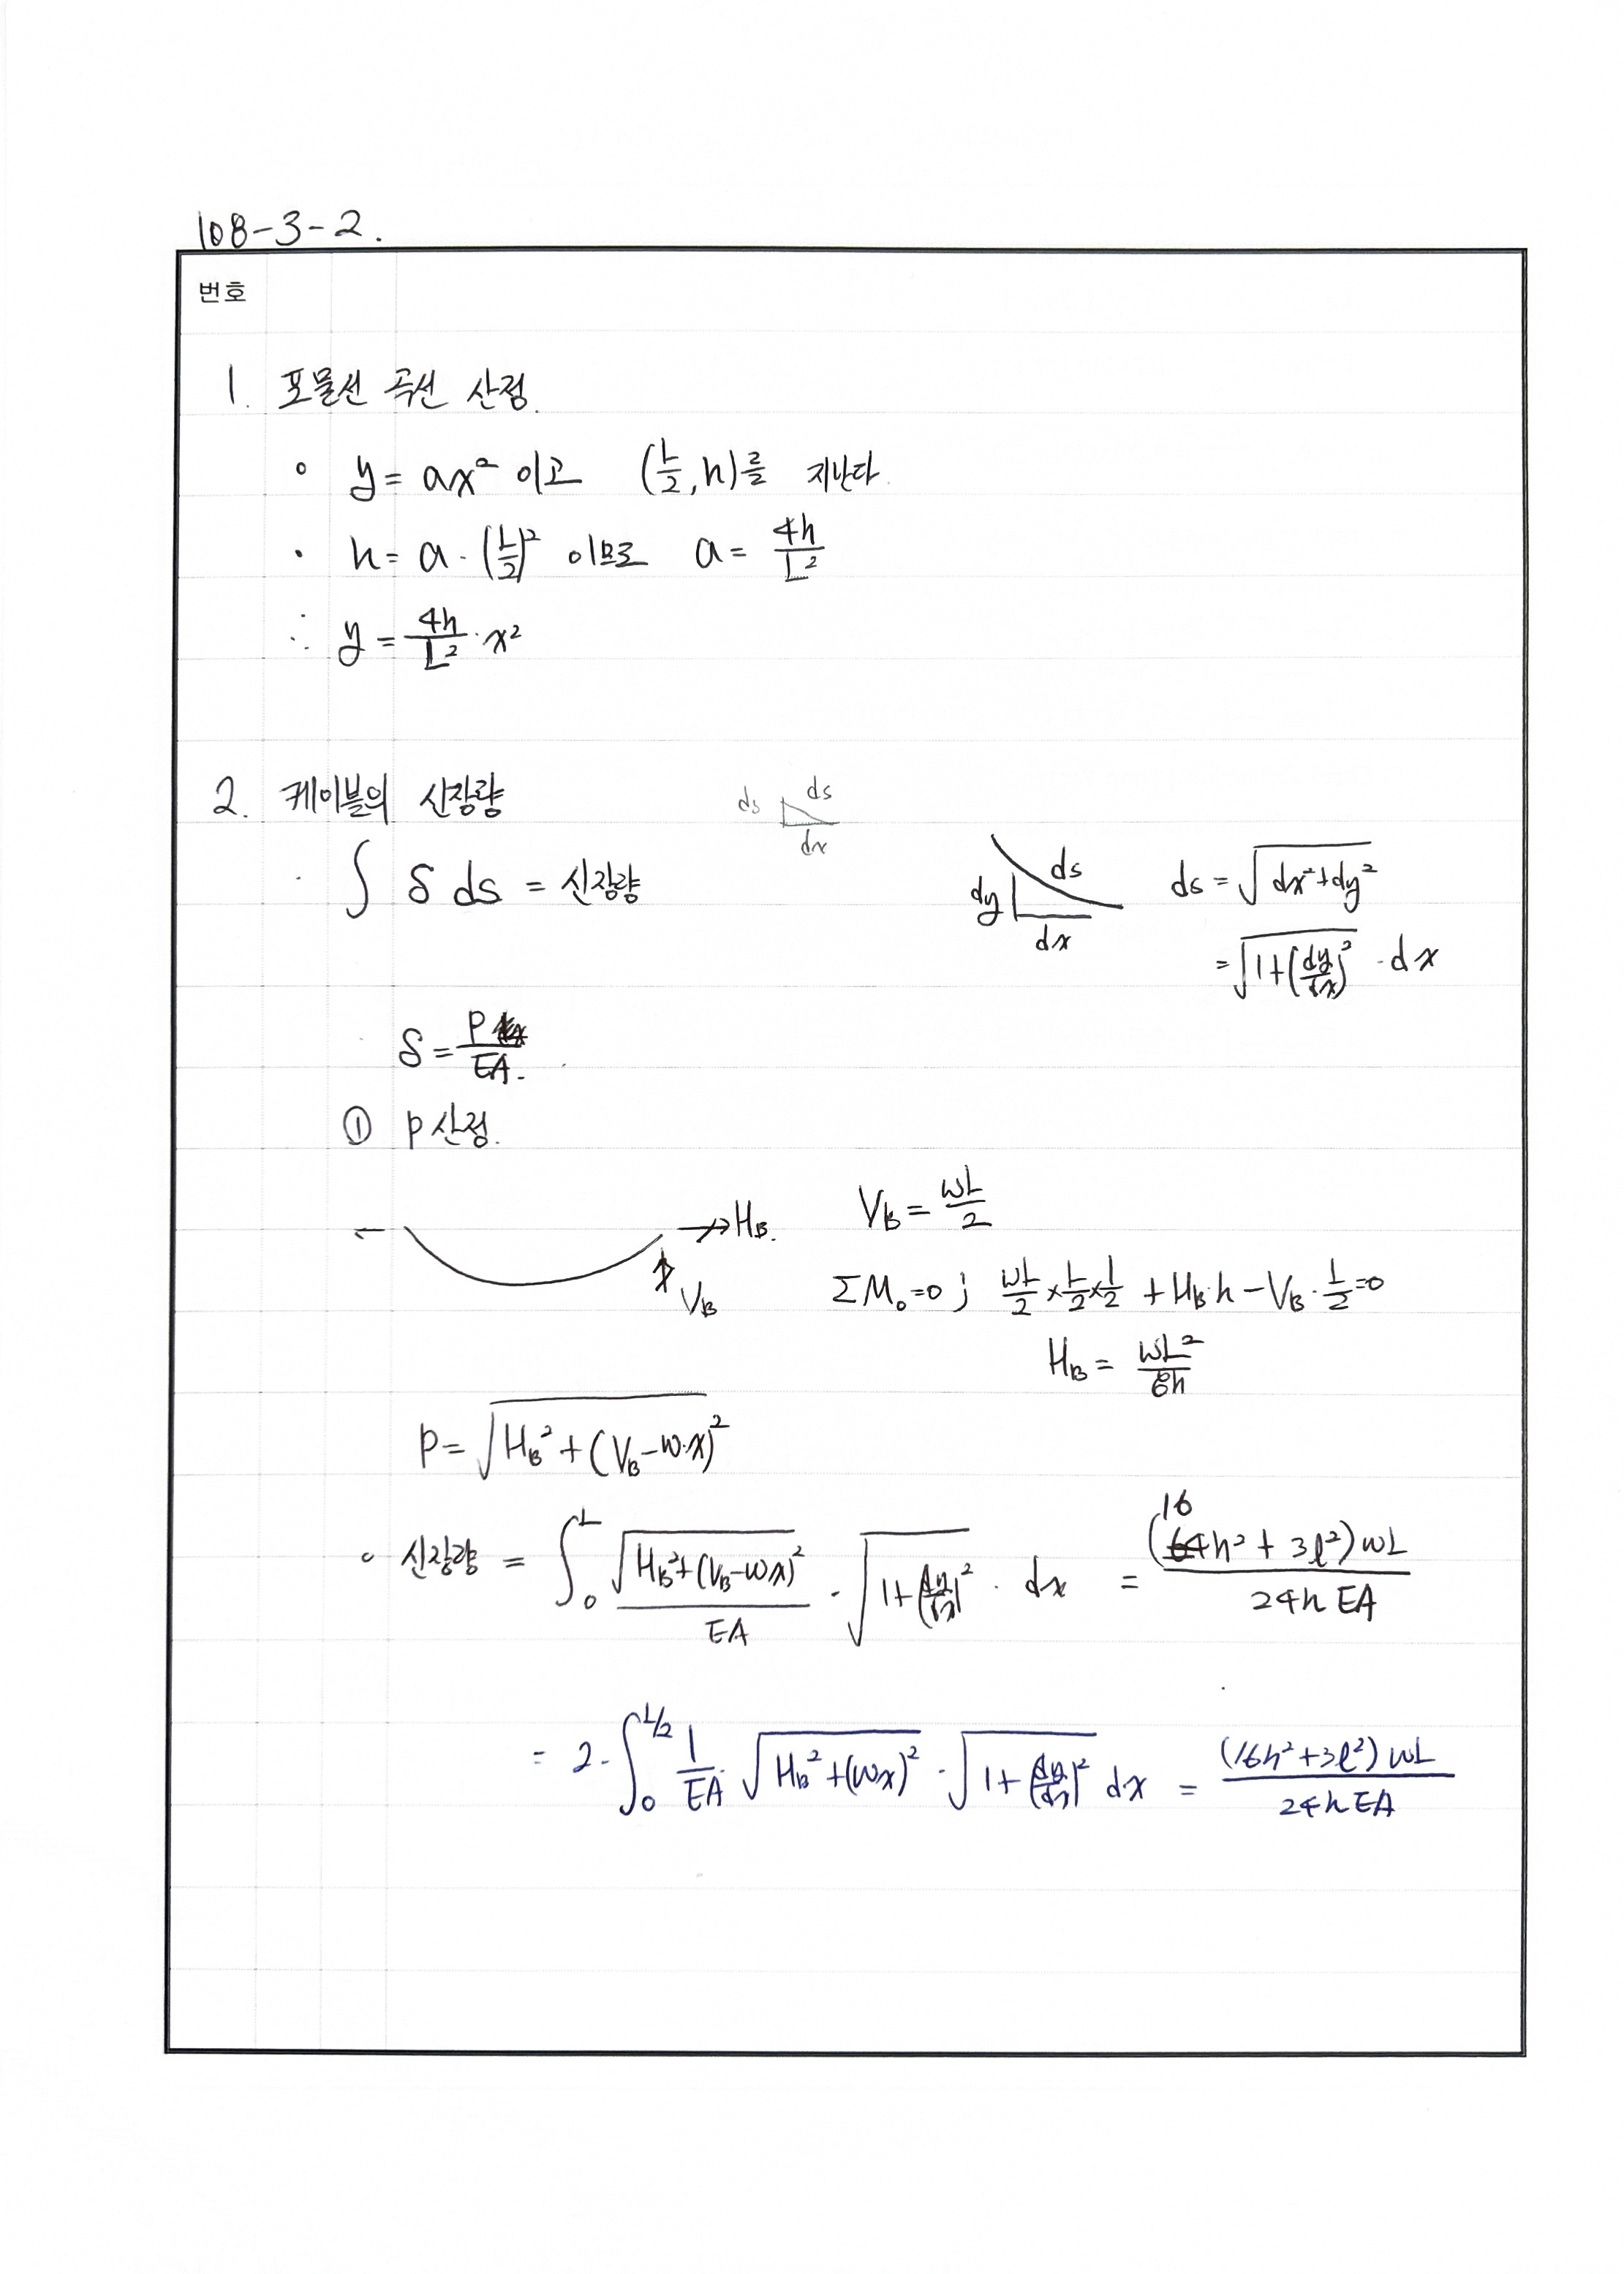 108-3-2.
번호
1. 포물선 곡선 산정.
∘ y = ax² 이고 (L/2, h)를 지난다.
· h = a · (L/2)² 이므로 a = 4h/L²
∴ y = 4h/L² · x²
2. 케이블의 신장량
ds ds
dx
· ∫ δ ds = 신장량
dy ds
dx
ds = √(dx²+dy²)
= √(1+(dy/dx)²) · dx
δ = P/EA.
① P 산정.
← → H_B.
V_B
V_B = wL/2
ΣM₀ = 0 ; wL/2 × L/2 × 1/2 + H_B·h - V_B · L/2 = 0
H_B = wL²/8h
P = √(H_B² + (V_B - w·x)²)
∘ 신장량 = ∫₀ᴸ √(H_B² + (V_B - wx)²)/EA · √(1+(dy/dx)²) · dx = (16h² + 3l²)wL / 24hEA
= 2 · ∫₀^(L/2) 1/EA · √(H_B² + (wx)²) · √(1+(dy/dx)²) dx = (16h² + 3l²)wL / 24hEA